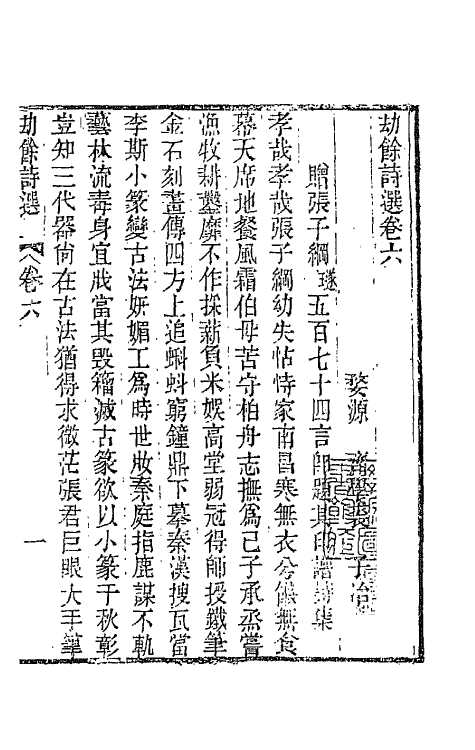 劫餘詩選卷六
婺源 齊學裘 子冶
贈張子綱璲五百七十四言即題其印譜詩集
孝哉孝哉張子綱幼失怙恃家南昌寒無衣兮饑無食
幕天席地餐風霜伯母苦守柏舟志撫為己子承烝嘗
漁牧耕鑿靡不作採薪負米娛高堂弱冠得師授鐵筆
金石刻畫傳四方上追蝌蚪窮鐘鼎下摹秦漢搜瓦當
李斯小篆變古法妍媚工為時世妝秦庭指鹿謀不軌
藝林流毒身宜戕當其毀籀滅古篆欲以小篆千秋彰
豈知三代器尚在古法猶得求微茫張君巨眼大手筆
劫餘詩選
卷六
一